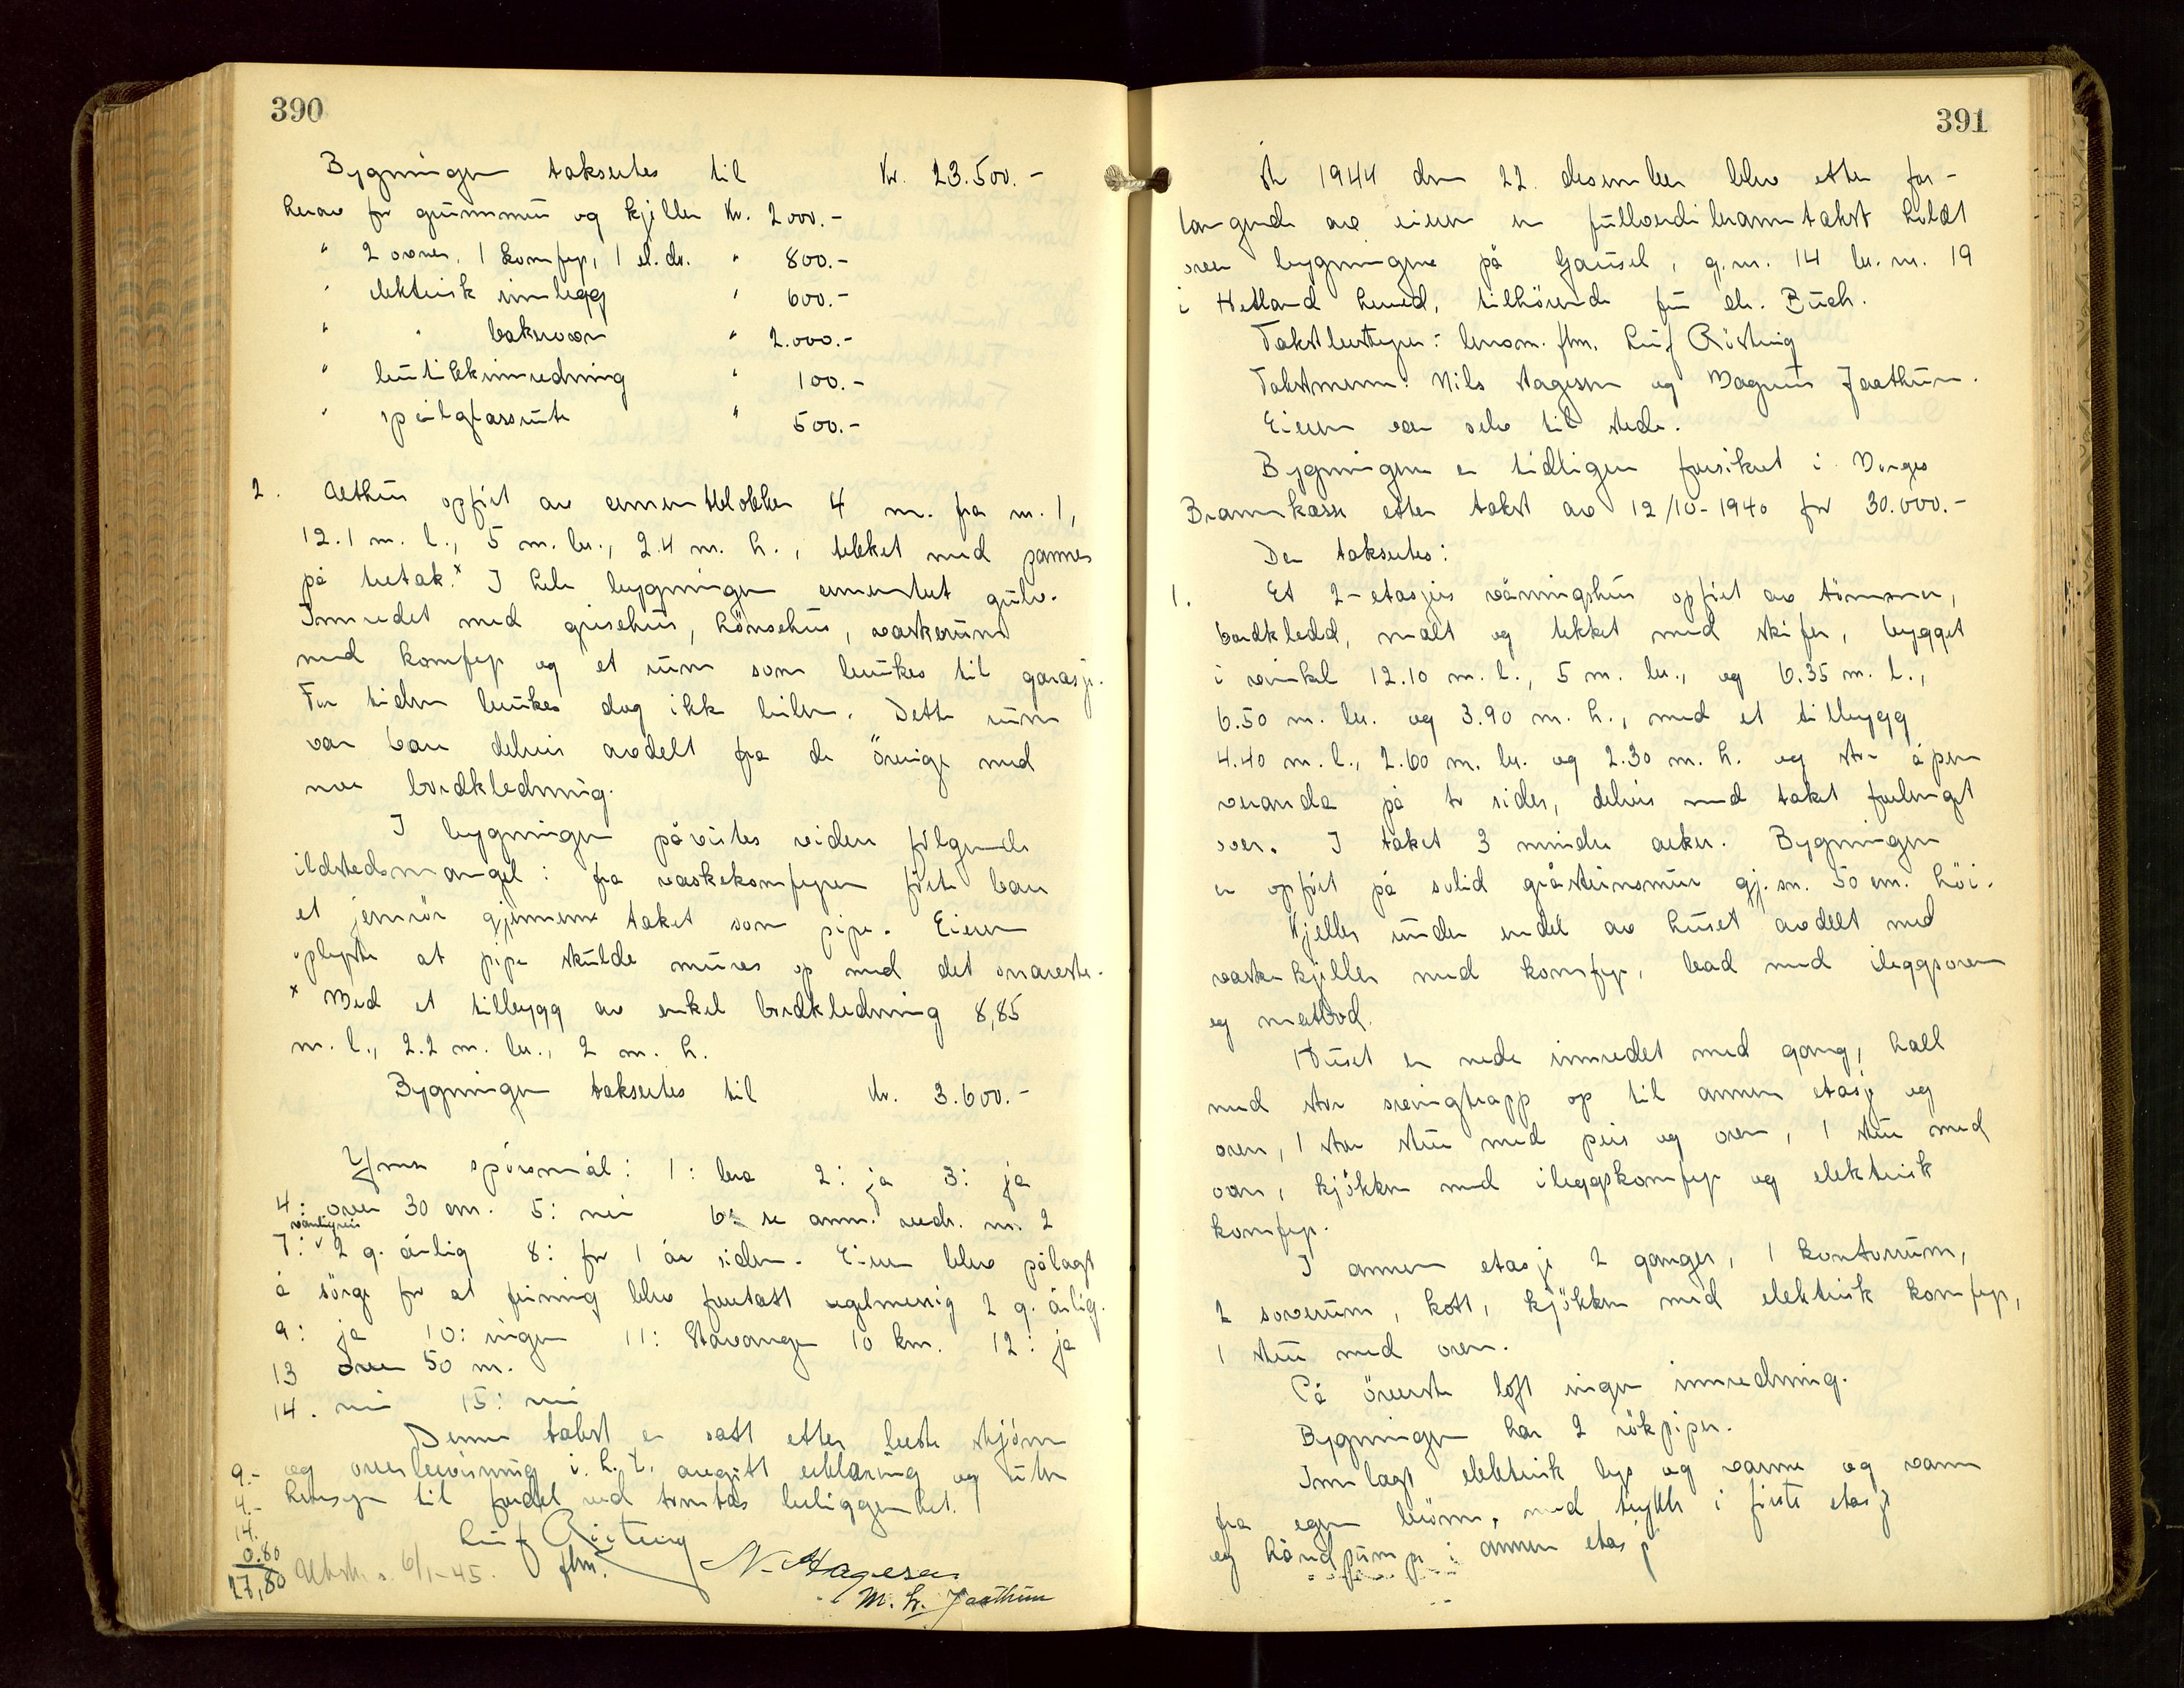 390
Bygningen takseres til Kr. 23.500.-
herav for grunnmur og kjeller Kr. 2000.-
" 2 ovner, 1 komfyr, 1 el. do. " 800.-
" elektrisk innlegg " 600.-
" " bakerovn " 2.000.-
" butikkinnredning " 100.-
" speilglassrute " 500.-
2. Uthus opført av cementblokker 4 m. fra nr. 1,
12.1 m. l., 5 m. br., 2.4 m. h., tekket med panner
på tretak.x I hele bygningen cementert gulv.
Innredet med grisehus, hönsehus, vaskerum
med komfyr og et rum som brukes til garasje.
For tiden brukes dog ikke bilen. Dette rum
var bare delvis avdelt fra de övrige med
noe bordkledning.
I bygningen påvistes videre følgende
ildstedsmangel: fra vaskekomfyren førte bare
et jernrör gjennem taket som pipe. Eieren
oplyste at pipe skulde mures op med det snareste.
x Med et tilbygg av enkel bordkledning 8,85
m. l., 2.2 m. br., 2 m. h.
Bygningen takseres til Kr. 3.600.-
Ymse spörsmål: 1: bra 2: ja 3: ja
4: over 30 cm. 5: nei 6: se anm. vedr. nr. 2
vanligvis
7: v 2 g. årlig 8: for 1 år siden. Eieren blev pålagt
å sörge for at feining blev foretatt regelmessig 2 g. årlig.
9: ja 10: ingen 11: Stavanger 10 km. 12: ja
13 over 50 m.
14. nei 15: nei
Denne takst er satt etter beste skjönn
og overbevisning i. h. t. avgitt erklæring og uten
hensyn til fordel ved tomtas beliggenhet.
9.-
4.-
14.-
0.80
27,80
Utskr. s. 6/1-45.
Leif Risting
flm.
N. Hagesen
M. H. Jaathun
391
År 1944 den 22. desember blev etter for-
langende av eieren en fullverdibranntakst holdt
over bygningene på Gausel, g.nr. 14 br. nr. 19
i Hetland herred, tilhörende fru Buch.
Takstbestyrer: lensm. flm. Leif Risting
Takstmenn: Nils Hagesen og Magnus Jaathun.
Eieren var selv til stede.
Bygningene er tidligere forsikret i Norges
Brannkasse etter takst av 12/10-1940 for 30.000.-
Der takseres:
1. Et 2-etasjers våningshus opført av tömmer,
bordkledd, malt og tekket med skifer, bygget
i vinkel 12.10 m. l., 5 m. br., og 6.35 m. l.,
6.50 m. br. og 3.90 m. h., med et tilbygg
4.40 m. l., 2.60 m. br. og 2.30 m. h. og stor åpen
veranda på to sider, delvis med taket forlenget
over. I taket 3 mindre arker. Bygningen
er opført på solid gråsteinsmur gj.sn. 50 cm. höi.
Kjeller under endel av huset avdelt med
vaskekjeller med komfyr, bad med ileggsovn
og matbod.
Huset er nede innredet med gang, hall
med stor svingtrapp op til annen etasje og
ovn, 1 stor stue med peis og ovn, 1 stue med
ovn, kjökken med ileggskomfyr og elektrisk
komfyr.
I annen etasje 2 ganger, 1 kontorrum,
2 soverum, kott, kjökken med elektrisk komfyr,
1 stue med ovn.
På överste loft ingen innredning.
Bygningen har 2 rökpiper.
Innlagt elektrisk lys og varme og vann
fra egen brönn, med trykk i første etasje
og håndpumpe i annen etasje